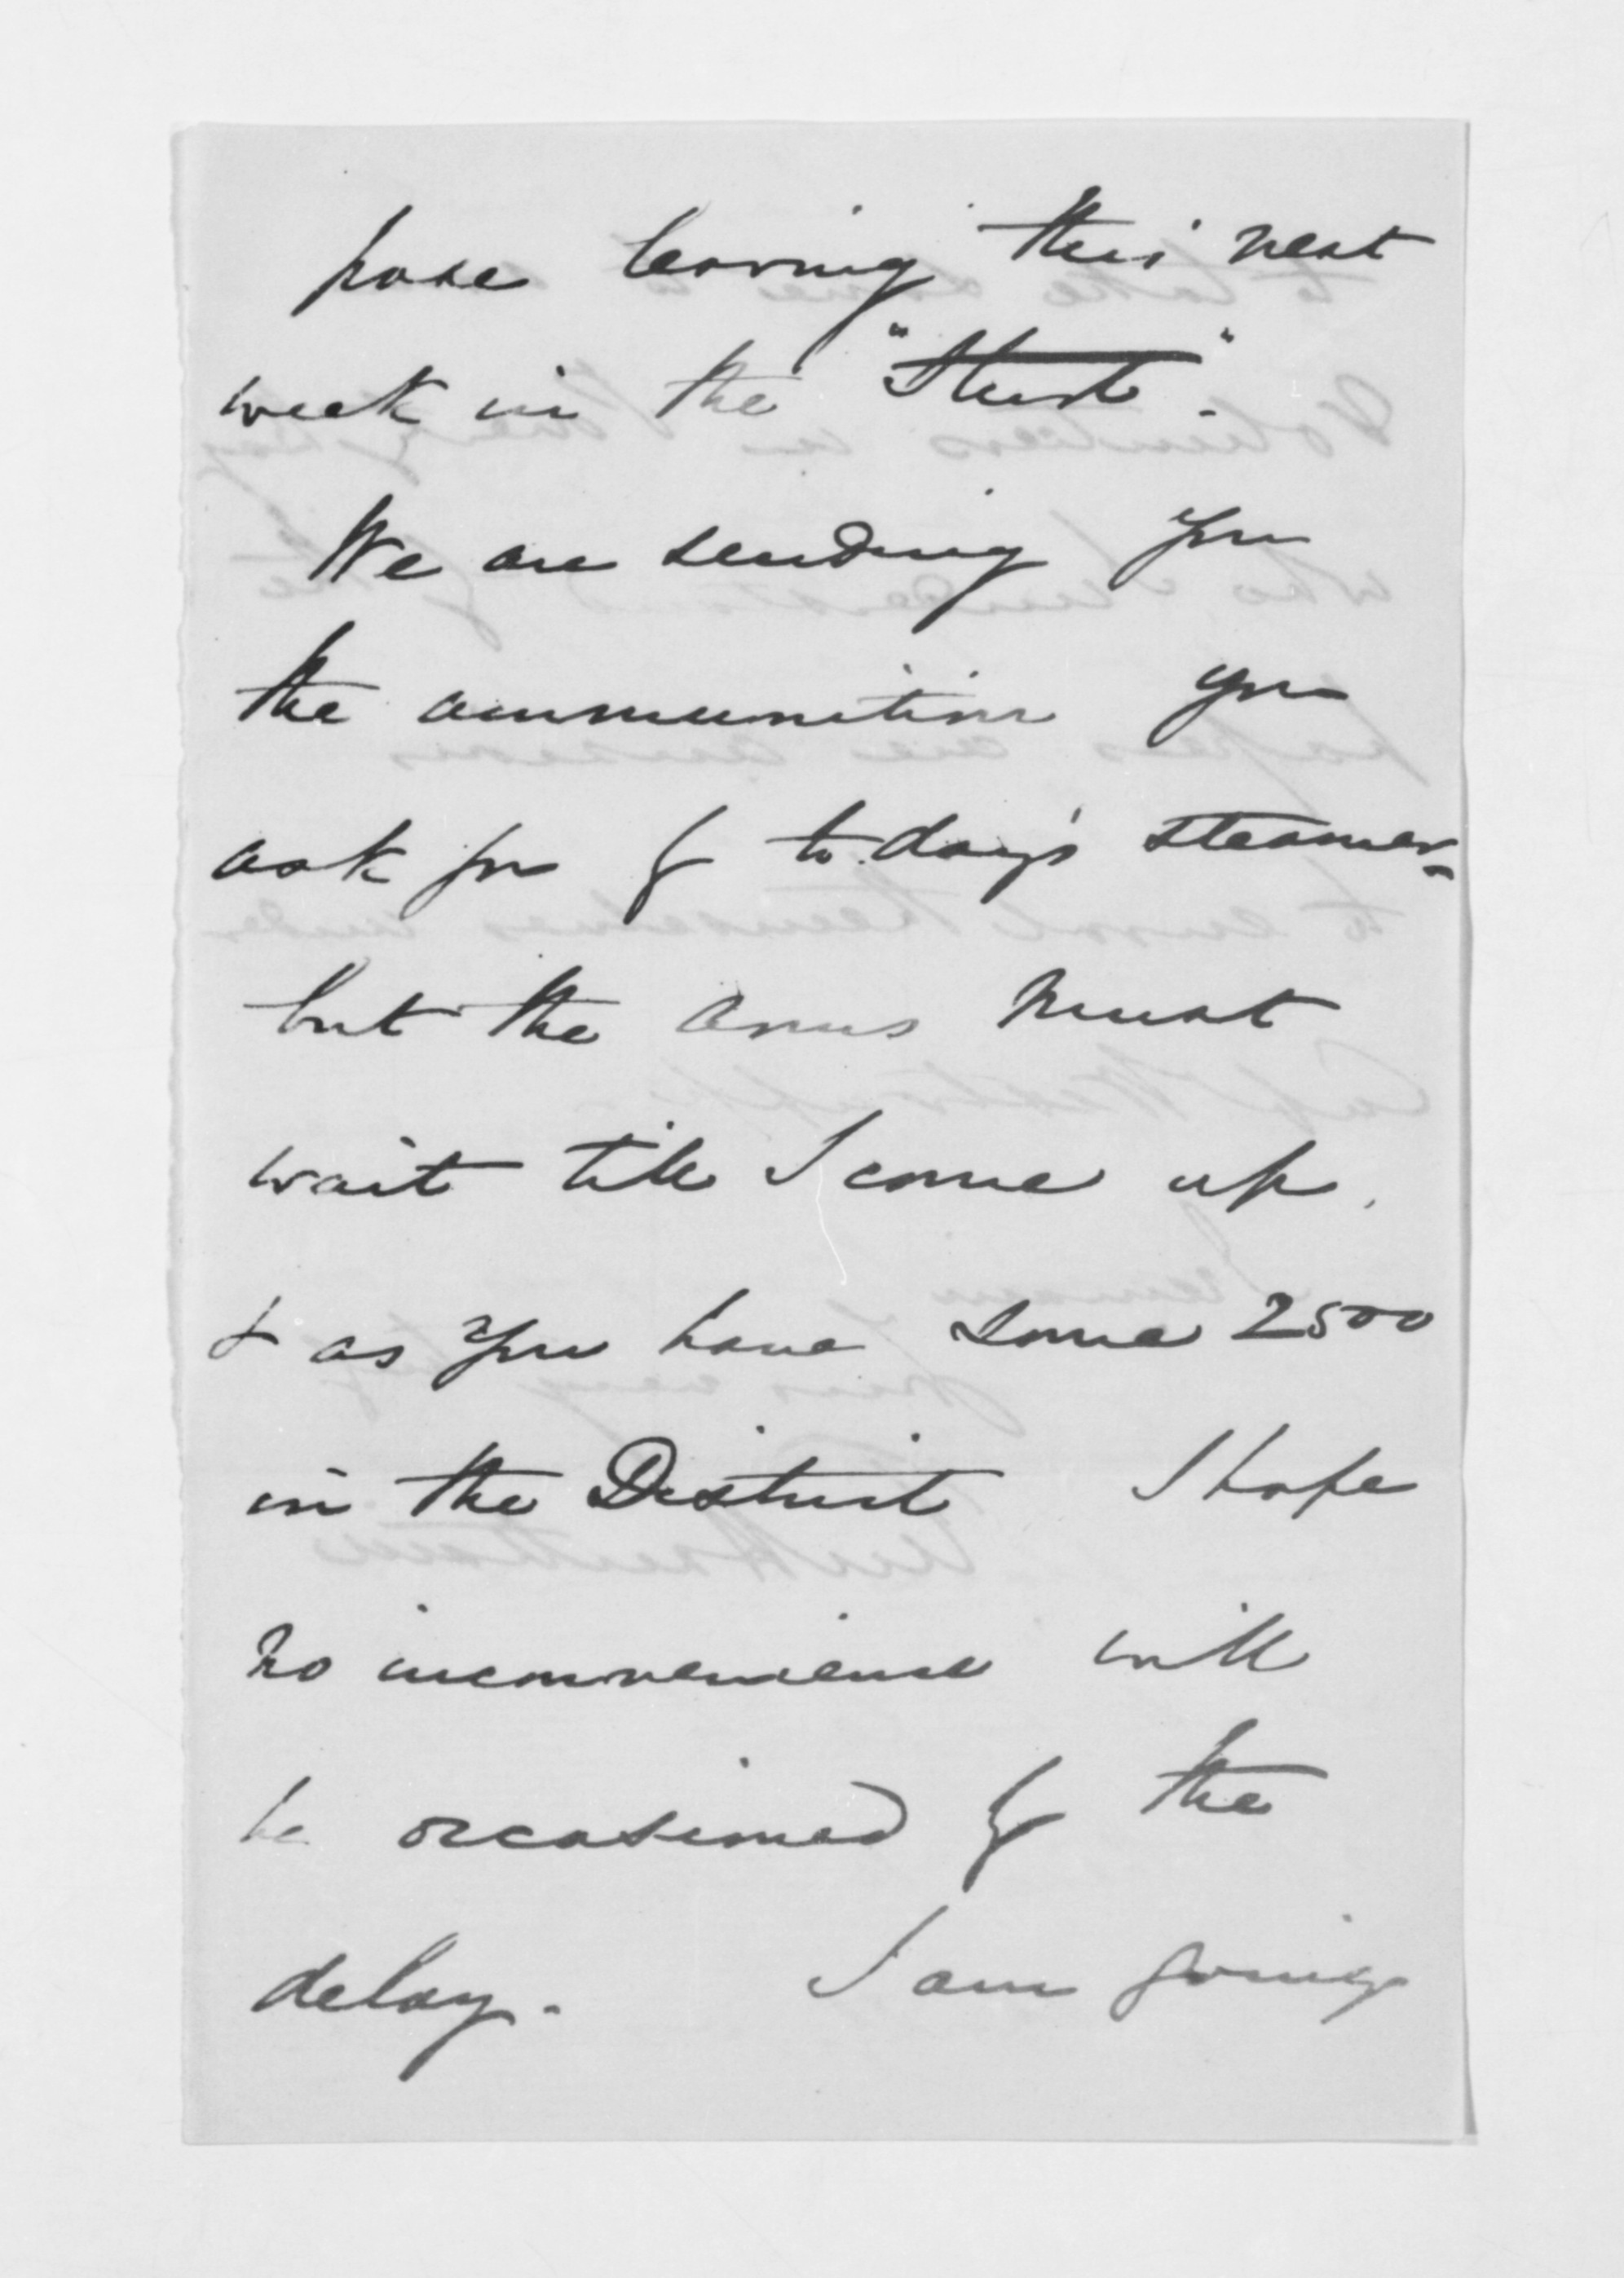 pose leaving this next
week in the "Sturt".
We are sending you
the ammunition you
ask for by to.day's steamer-
but the arms must
wait till I come up.
& as you have some 2500
in the District I hope
no inconvenience will
be occasioned by the
delay. I am going